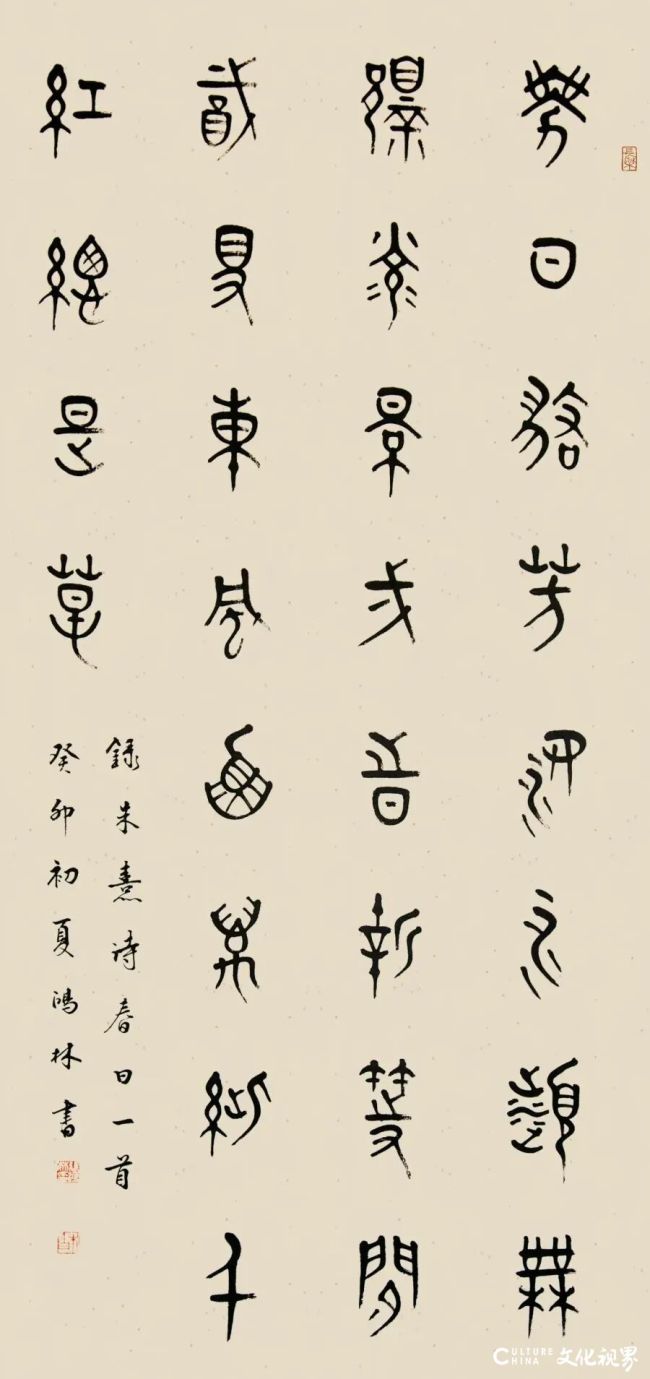 勝日尋芳泗水濱無
邊光景一時新等閒
識得東風面萬紫千
紅總是春
錄朱熹詩春日一首
癸卯初夏鴻林書
長樂
CULTURE CHINA 文化视界